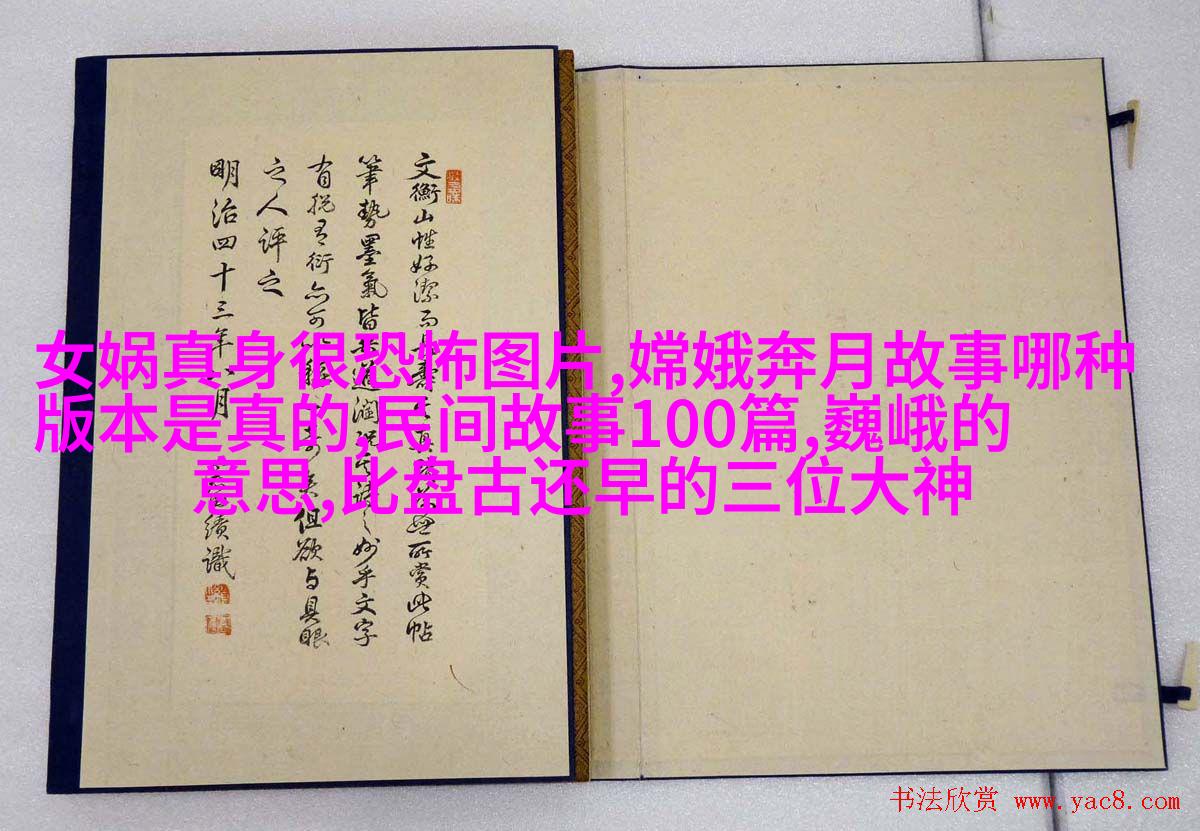 女娲真身很恐怖图片,嫦娥奔月故事哪种
版本是真的,民间故事100篇,巍峨的
意思,比盘古还早的三位大神
文衡山性好潔而 所賞此帖
筆勢墨氣皆 潤 妙乎文字
有 衍亦可 但欲与具眼
之人評之
明治四十三年八月 績識
书法欣赏 www.yac8.com